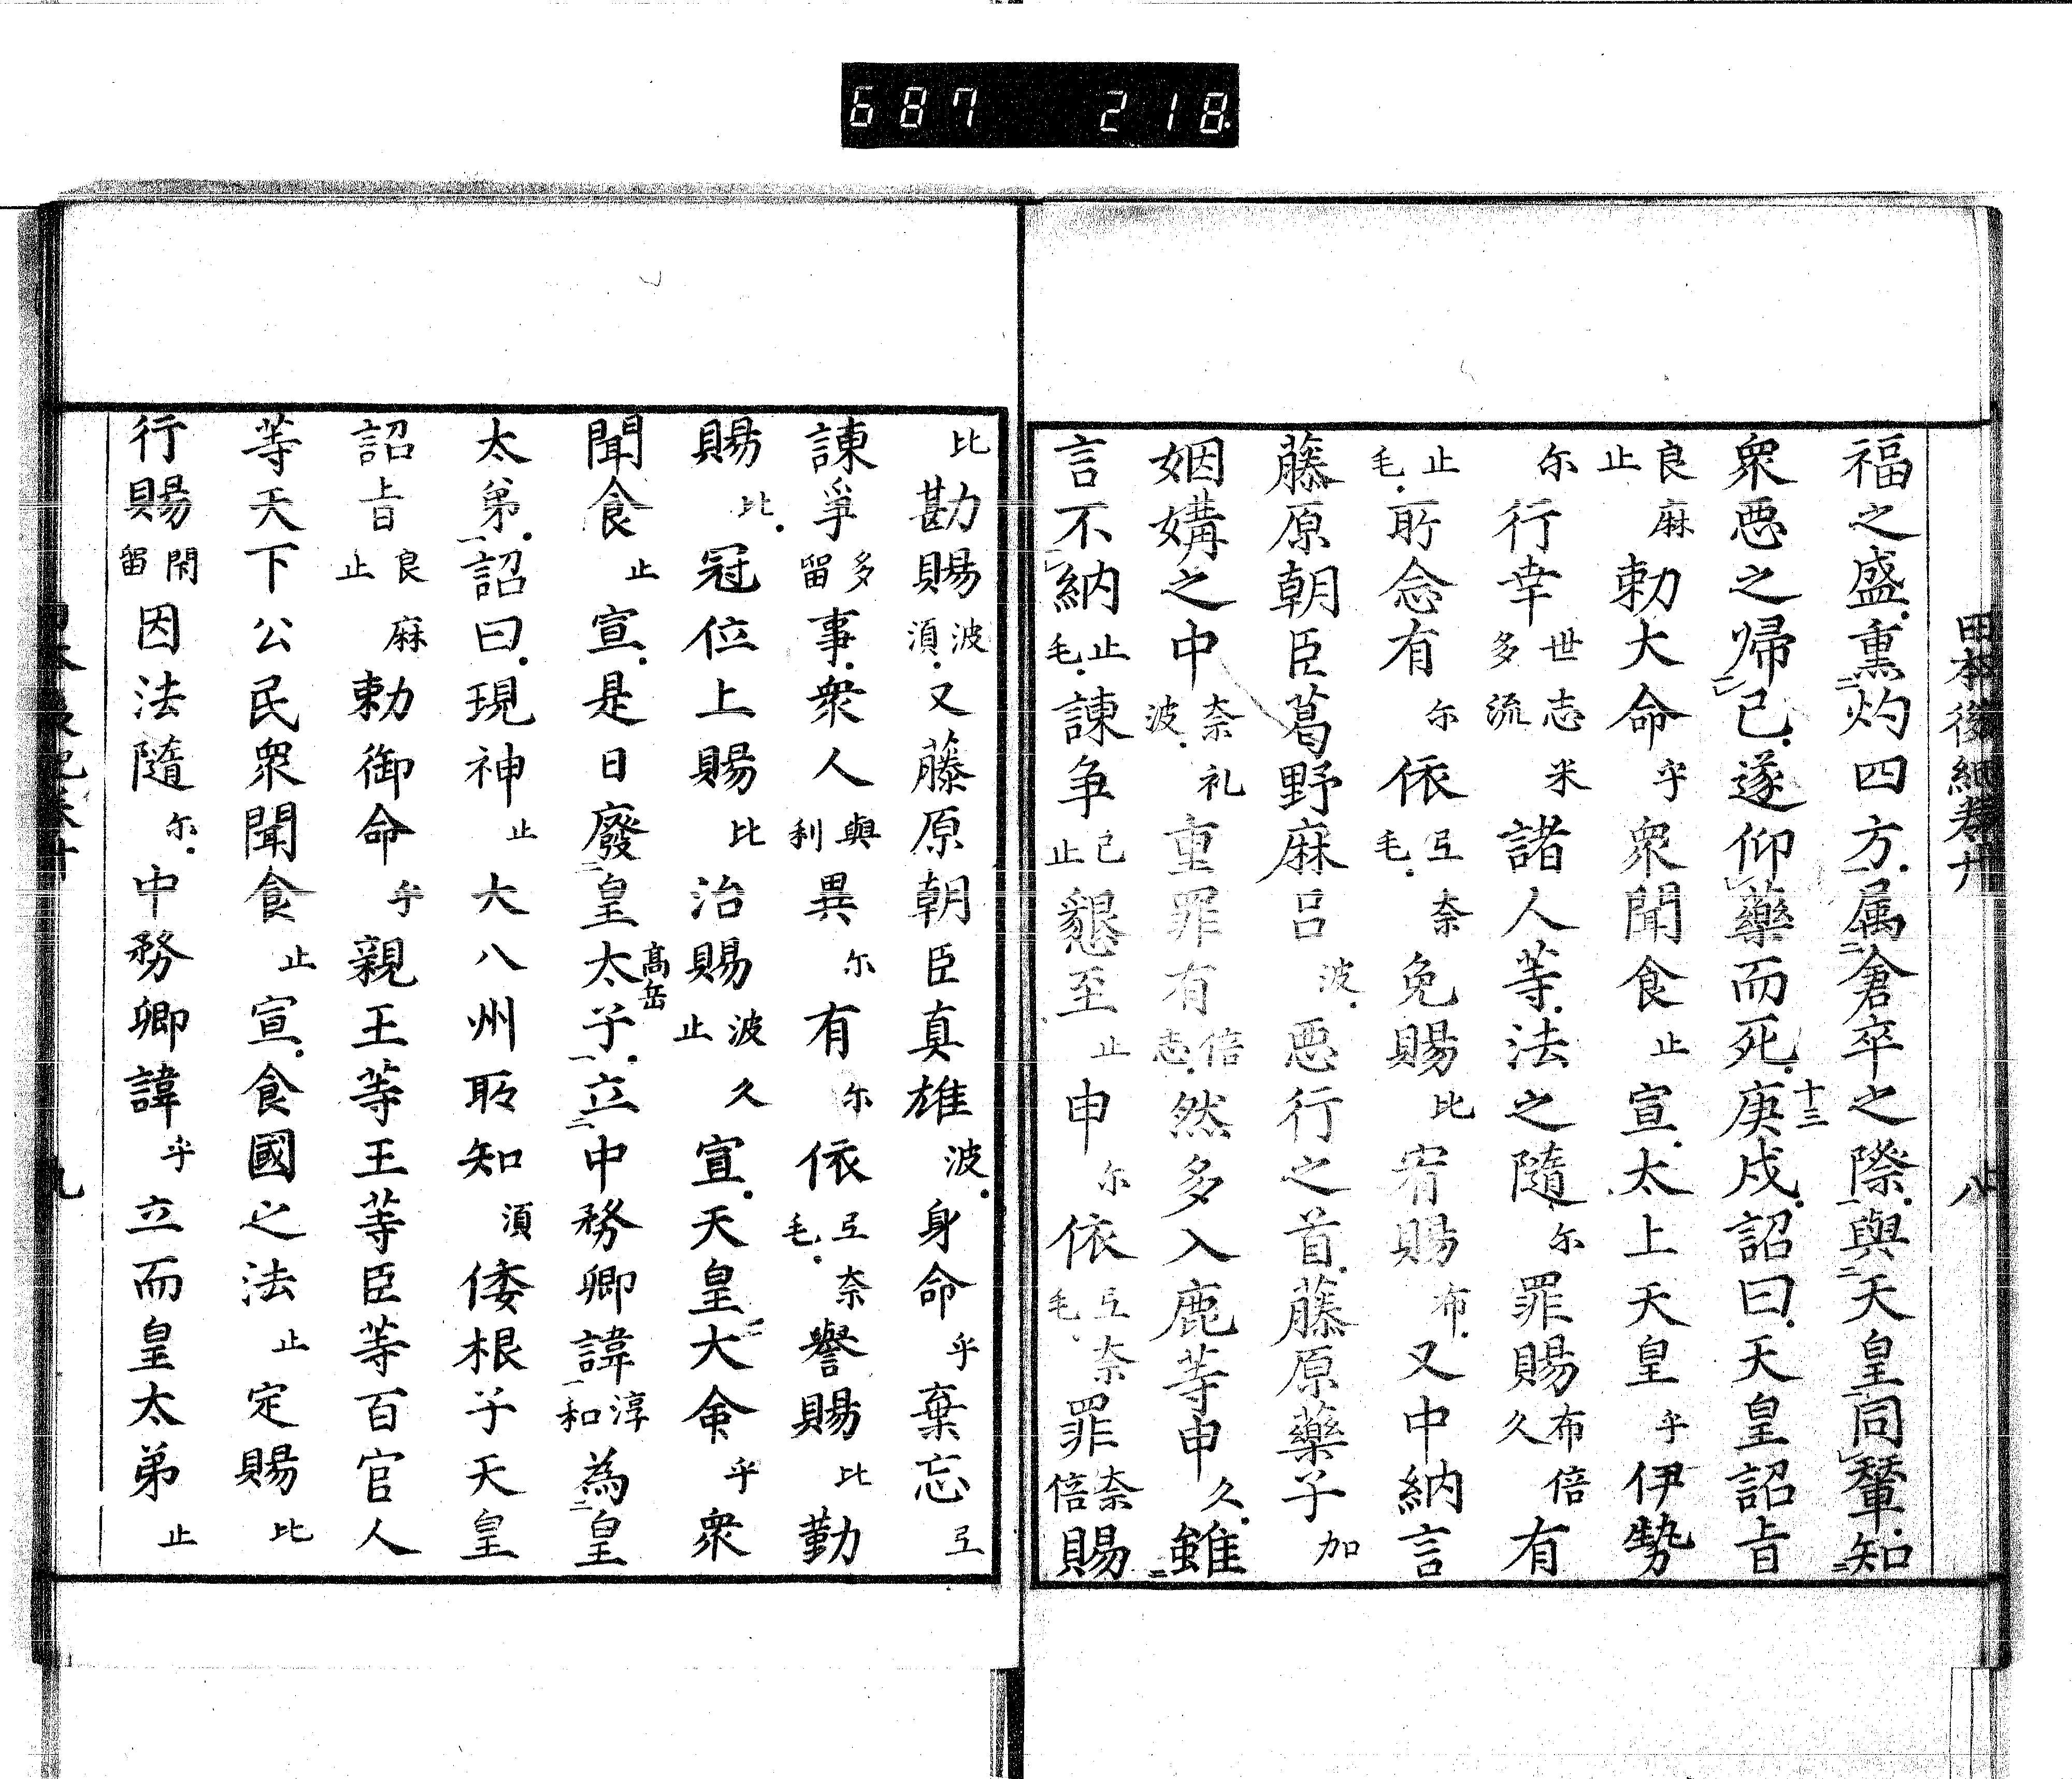 687 218
日本後紀卷廿 八
福之盛熏灼四方属倉卒之際與天皇同輦知
衆惡之歸己遂仰藥而死庚戌十三詔曰天皇詔旨
良麻止勅大命乎衆聞食止宣太上天皇乎伊勢
尓行幸世志米多流諸人等法之隨尓罪賜布倍久有
止毛所念有尓依弖奈毛免賜比宥賜布又中納言
藤原朝臣葛野麻呂波惡行之首藤原藥子加
姻媾之中奈礼波重罪有倍志然多入鹿等申久雖
言不納止毛諫争己止懇至止申尓依弖奈毛罪奈倍賜
比勘賜波須又藤原朝臣真雄波身命乎棄忘弖
諫爭多留事衆人與利異尓有尓依弖奈毛譽賜比勤
賜比冠位上賜比治賜波久止宣天皇大命乎衆
聞食止宣是日廢皇太子高岳立中務卿諱淳和為皇
太弟詔曰現神止大八州所知須倭根子天皇
詔旨良麻止勅御命乎親王等王等臣等百官人
等天下公民衆聞食止宣食國之法止定賜比
行賜閇留因法隨尓中務卿諱乎立而皇太弟止
九